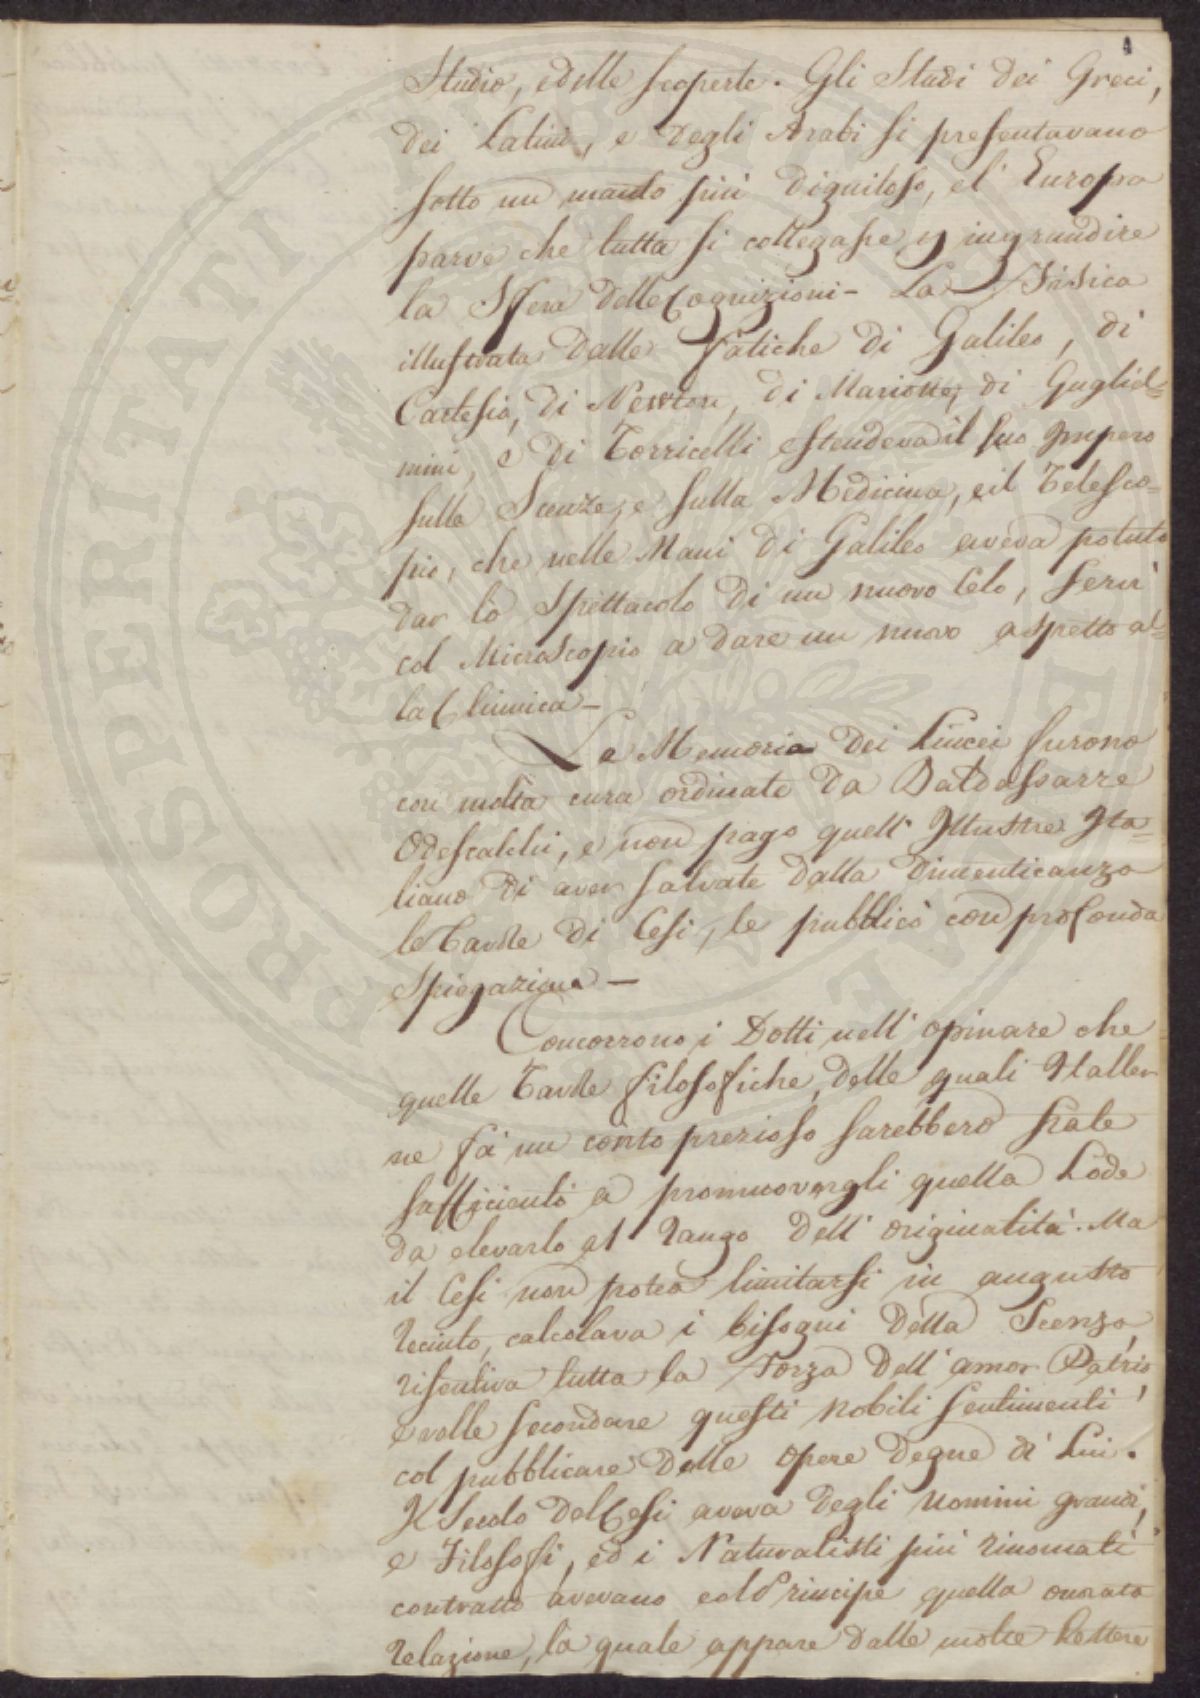 4
Studio, e delle scoperte. Gli Studi dei Greci,
dei Latini, e degli Arabi si presentavano
sotto un manto più dignitoso, e l'Europa
parve che tutta si collegasse ad ingrandire
la Sfera delle Cognizioni - La Fisica
illustrata dalle fatiche di Galileo, di
Cartesio, di Newton, di Mariotte, di Gugliel=
mini, e di Torricelli estendeva il suo Impero
sulle Scenze, e sulla Medicina, e il Telesco=
pio, che nelle Mani di Galileo aveva potuto
dar lo Spettacolo di un nuovo Celo, servì
col Microscopio a dare un nuovo aspetto al=
la Chimica -
Le Memorie dei Lincei furono
con molta cura ordinate da Baldassarre
Odescalchi, e non pago quell' Illustre Ita=
liano di aver salvate dalla dimenticanza
le Tavole di Cesi, le pubblicò con profonda
Spiegazione -
Concorrono i Dotti nell' opinare che
quelle Tavole filosofiche, delle quali Haller
ne fà un conto prezioso sarebbero state
sufficienti a promuovergli quella Lode
da elevarlo al rango dell' originalità. Ma
il Cesi non potea limitarsi in angusto
recinto, calcolava i bisogni della Scenza,
risentiva tutta la Forza dell' amor Patrio
e volle secondare questi nobili sentimenti
col pubblicare delle opere degne di Lui.
Il Secolo del Cesi aveva degli uomini grandi,
e Filosofi, ed i Naturalisti più rinomati
contratto avevano col Principe quella onorata
relazione, la quale appare dalle molte Lettere
PROSPERITATI PUBLICAE